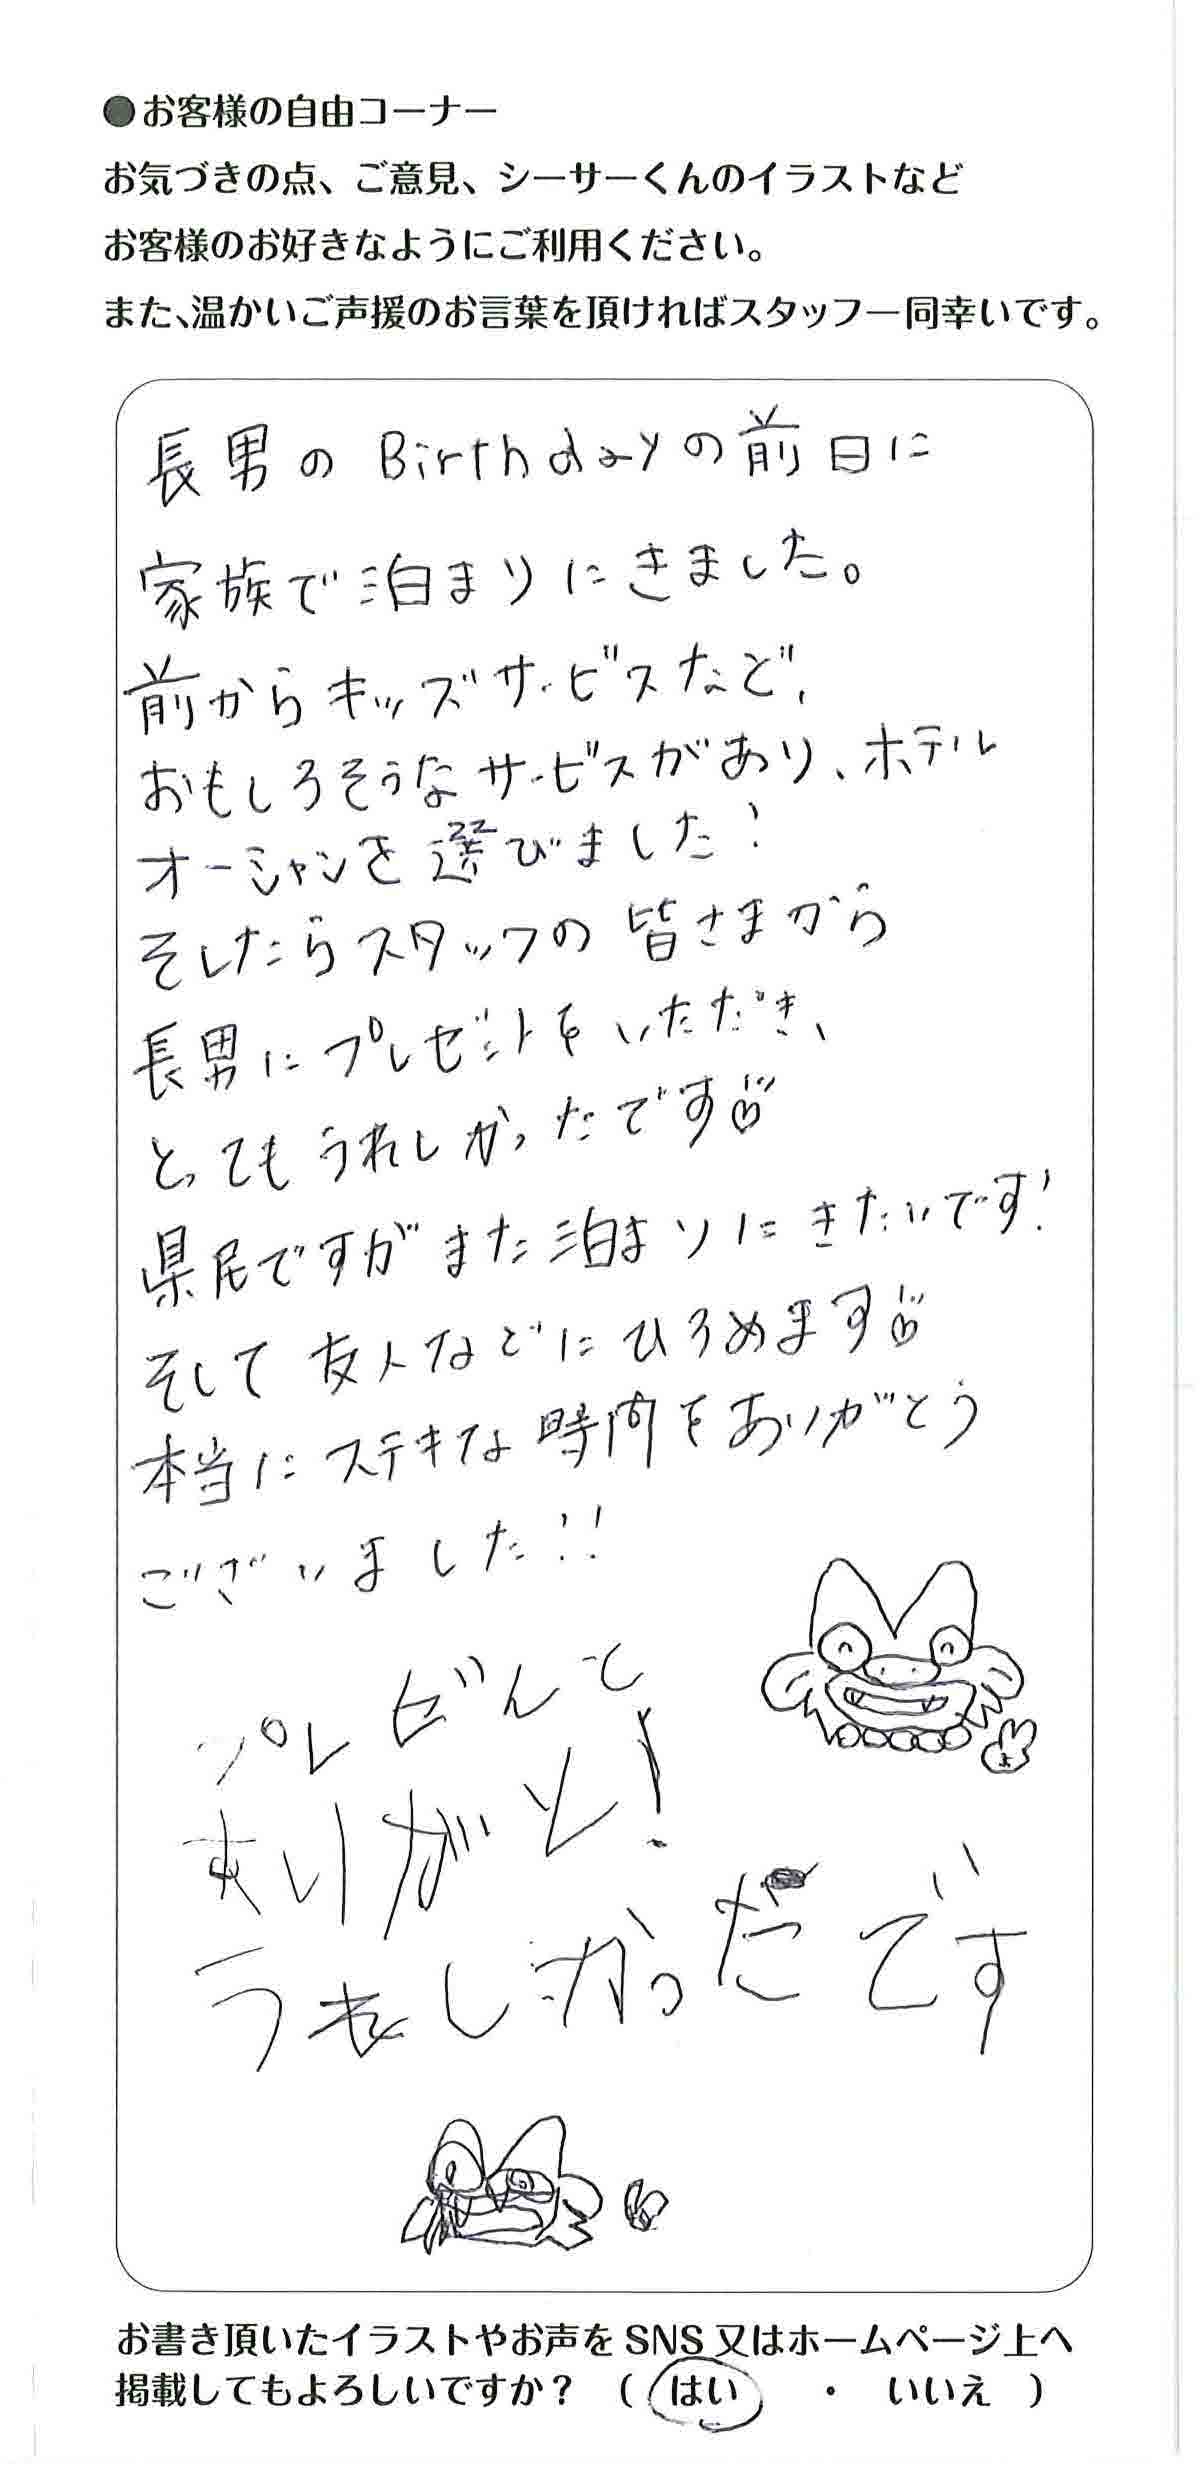 ●お客様の自由コーナー
お気づきの点、ご意見、シーサーくんのイラストなど
お客様のお好きなようにご利用ください。
また、温かいご声援のお言葉を頂ければスタッフ一同幸いです。
長男のBirthdayの前日に
家族で泊まりにきました。
前からキッズサービスなど、
おもしろそうなサービスがあり、ホテル
オーシャンを選びました!
そしたらスタッフの皆さまから
長男にプレゼントをいただき、
とってもうれしかったです
県民ですがまた泊まりにきたいです!
そして友人などにひろめます
本当にステキな時間をありがとう
ございました!!
プレぜんと
ありがと!
うれしかっだです
お書き頂いたイラストやお声をSNS又はホームページ上へ
掲載してもよろしいですか? ( はい ・ いいえ )